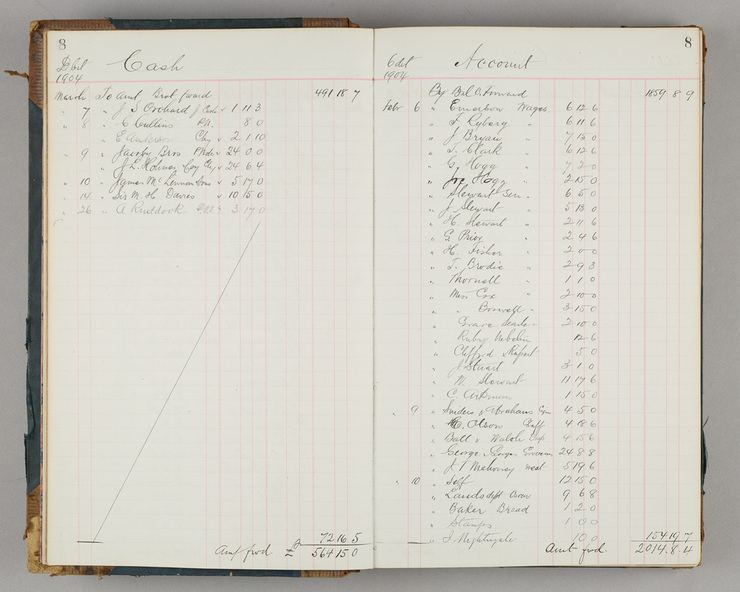 8
Debit Cash
1904
March To Amt Brot forward 491 18 7
" 7 " J S Orchard J 1 11 3
" 8 " C Cullins 8 0
" E Anderson 2 1 10
" 9 " Jacoby Bros 24 0 0
" J L Coy 24 6 4
" 10 " James McLennan Sons 5 17 0
" 14 " Sir M. H. Davies 10 15 0
" 26 " A 3 19 0
72 16 5
Amt fwd £ 564 15 0
8
Cdit Account
1904
By Bal O. Forward 1859 8 9
Febr 6 " Emerson Wages 6 12 6
" F Ryberg " 6 11 6
" J Bryan " 7 12 0
" T. Clark " 6 12 6
" G Hogg " 7 2 0
" Joe Hogg " 2 15 0
" Stewart Sen 6 5 0
" J Stewart " 5 13 0
" H. Stewart " 2 11 6
" G Prior " 2 4 6
" H. Fisher " 2 0 0
" T. Brodie " 2 9 3
" Thornell " 1 1 0
" Miss Cox " 2 10 0
" " 3 15 0
" 2 10 0
" Ruby 12 6
" Clifford 5 0
" J Stuart 3 1 0
" W. Stewart 11 17 6
" C. 1 15 0
" 9 " Sniders & Abrahams 4 5 0
" Olson Chaff 4 18 6
" Ball & Welch 4 15 6
" George 24 8 8
" J T Mahoney meat 5 19 6
" 10 " Self 12 15 0
" Lands dept 9 6 8
" Baker Bread 1 2 0
" Stamps 1 0 0
" J. Nightingale 10 0
154 19 7
Amt fwd. 2014. 8. 4